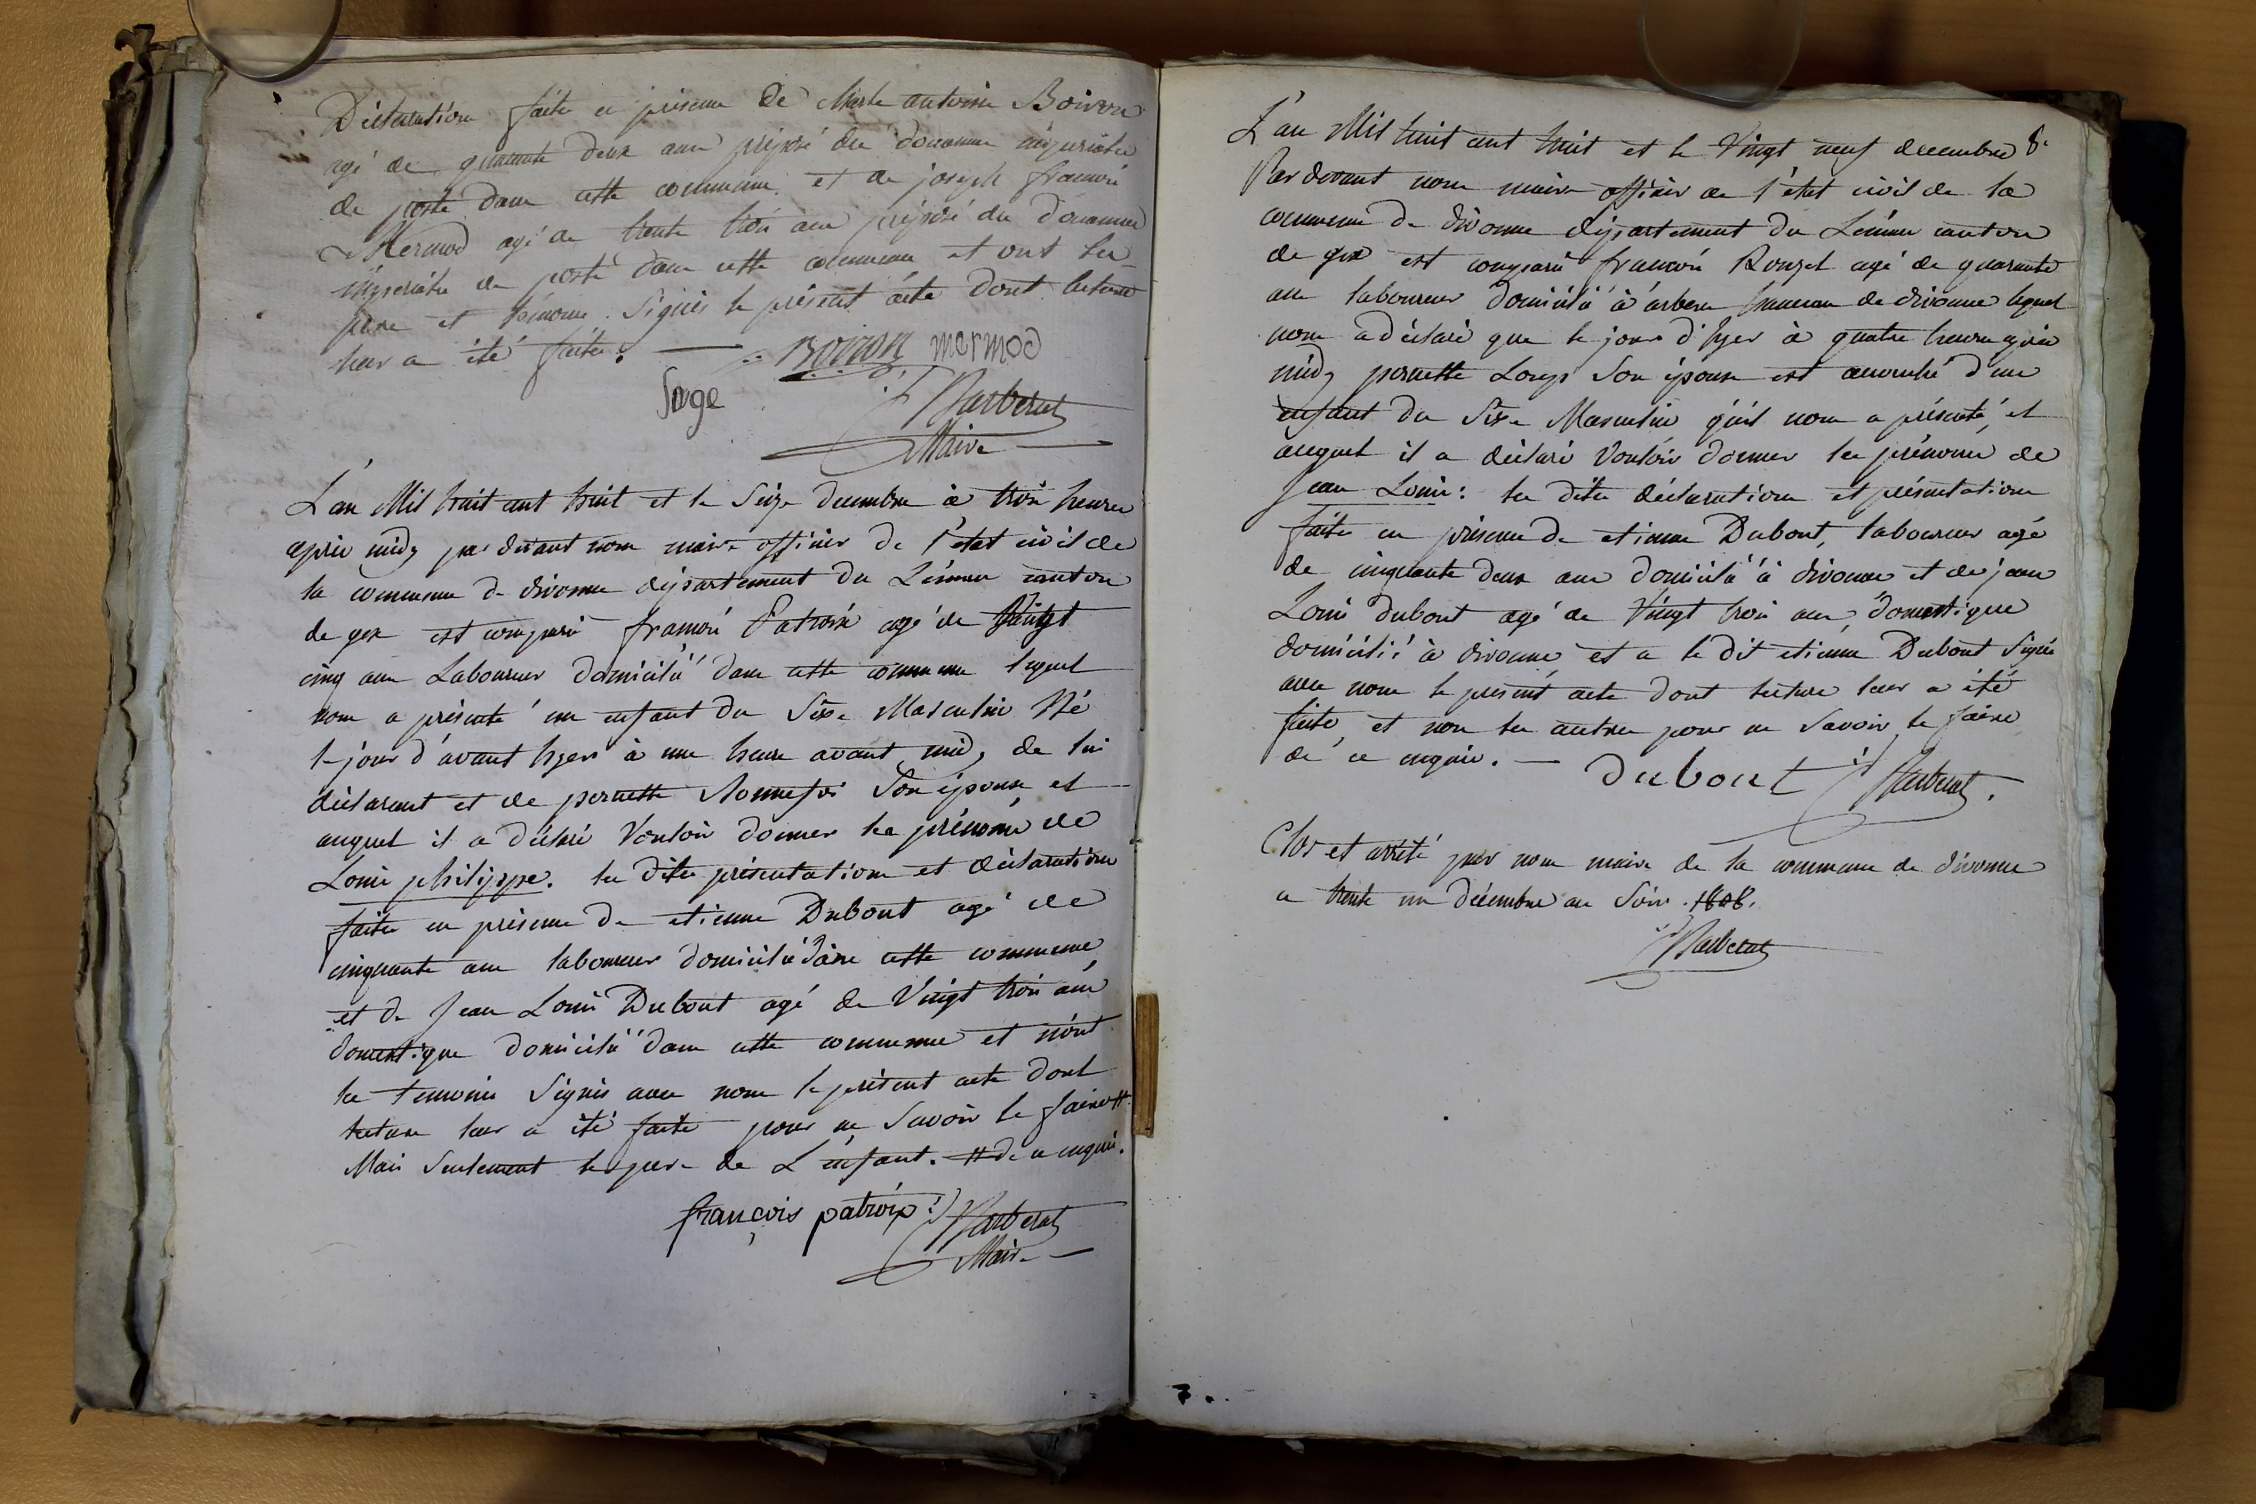 Déclaration faite en présence de Marc antoine Boiron
agé de quarante deux ans préposé des douanes impériales
de poste dans cette commune et de joseph francois
Mermod agé de trente trois ans préposé des douannes
impériales de poste dans cette commune et ont les
pere et témoins signés le présent acte dont lecture
leur a été faite. Boiron mermod
Sage JJ Barberat
Maire
L'an Mil huit cent huit et le Seize decembre à trois heures
après midy par devant nous maire officier de l'état civil de
la commune de divonne département du Léman canton
de gex est comparu francois Patroix agé de Vingt
cinq ans Laboureur domicilié dans cette commune lequel
nous a présenté un enfant du Sexe Masculin Né
le jour d'avant hyer à une heure avant midy de lui
déclarant et de pernette Son épouse et
auquel il a déclaré Vouloir donner les prénoms de
Louis philippe. les dites présentation et déclaration
faites en présence de etienne Dubout agé de
cinquante ans laboureur domicilié dans cette commune
et de Jean Louis Dubout agé de Vingt trois ans
domestique domicilié dans cette commune et n'ont
les temoins Signés avec nous le présent acte dont
lecture leur a été faite pour ne Savoir le faire #
Mais Seulement le pere de L'enfant. # de ce enquis.
françois patroix JJ Barberat
Maire
L'an Mil huit cent huit et le Vingt neuf decembre
Par devant nous maire officier de l'état civil de la
commune de divonne département du Léman canton
de gex est comparu francois Rouzet agé de quarante
ans laboureur domicilié à arbere hameau de divonne lequel
nous a déclaré que le jour d'hyer à quatre heures après
midy pernette Loup Son épouse est accouchée d'un
enfant du Sexe Masculin qu'il nous a présenté, et
auquel il a déclaré Vouloir donner les prénoms de
Jean Louis: les dites déclaration et présentation
faites en présence de etienne Dubout, laboureur agé
de cinquante deux ans domicilié à divonne et de jean
Louis Dubout agé de Vingt trois ans domestique
domicilié à divonne et a le dit etienne Dubout Signé
avec nous le présent acte dont lecture leur a été
faite, et non les autres pour ne Savoir le faire
de ce enquis. — dubout JJ Barberat
Clos et arrêté par nous maire de la commune de divonne
ce trente un décembre au Soir 1808.
JJ Barberat